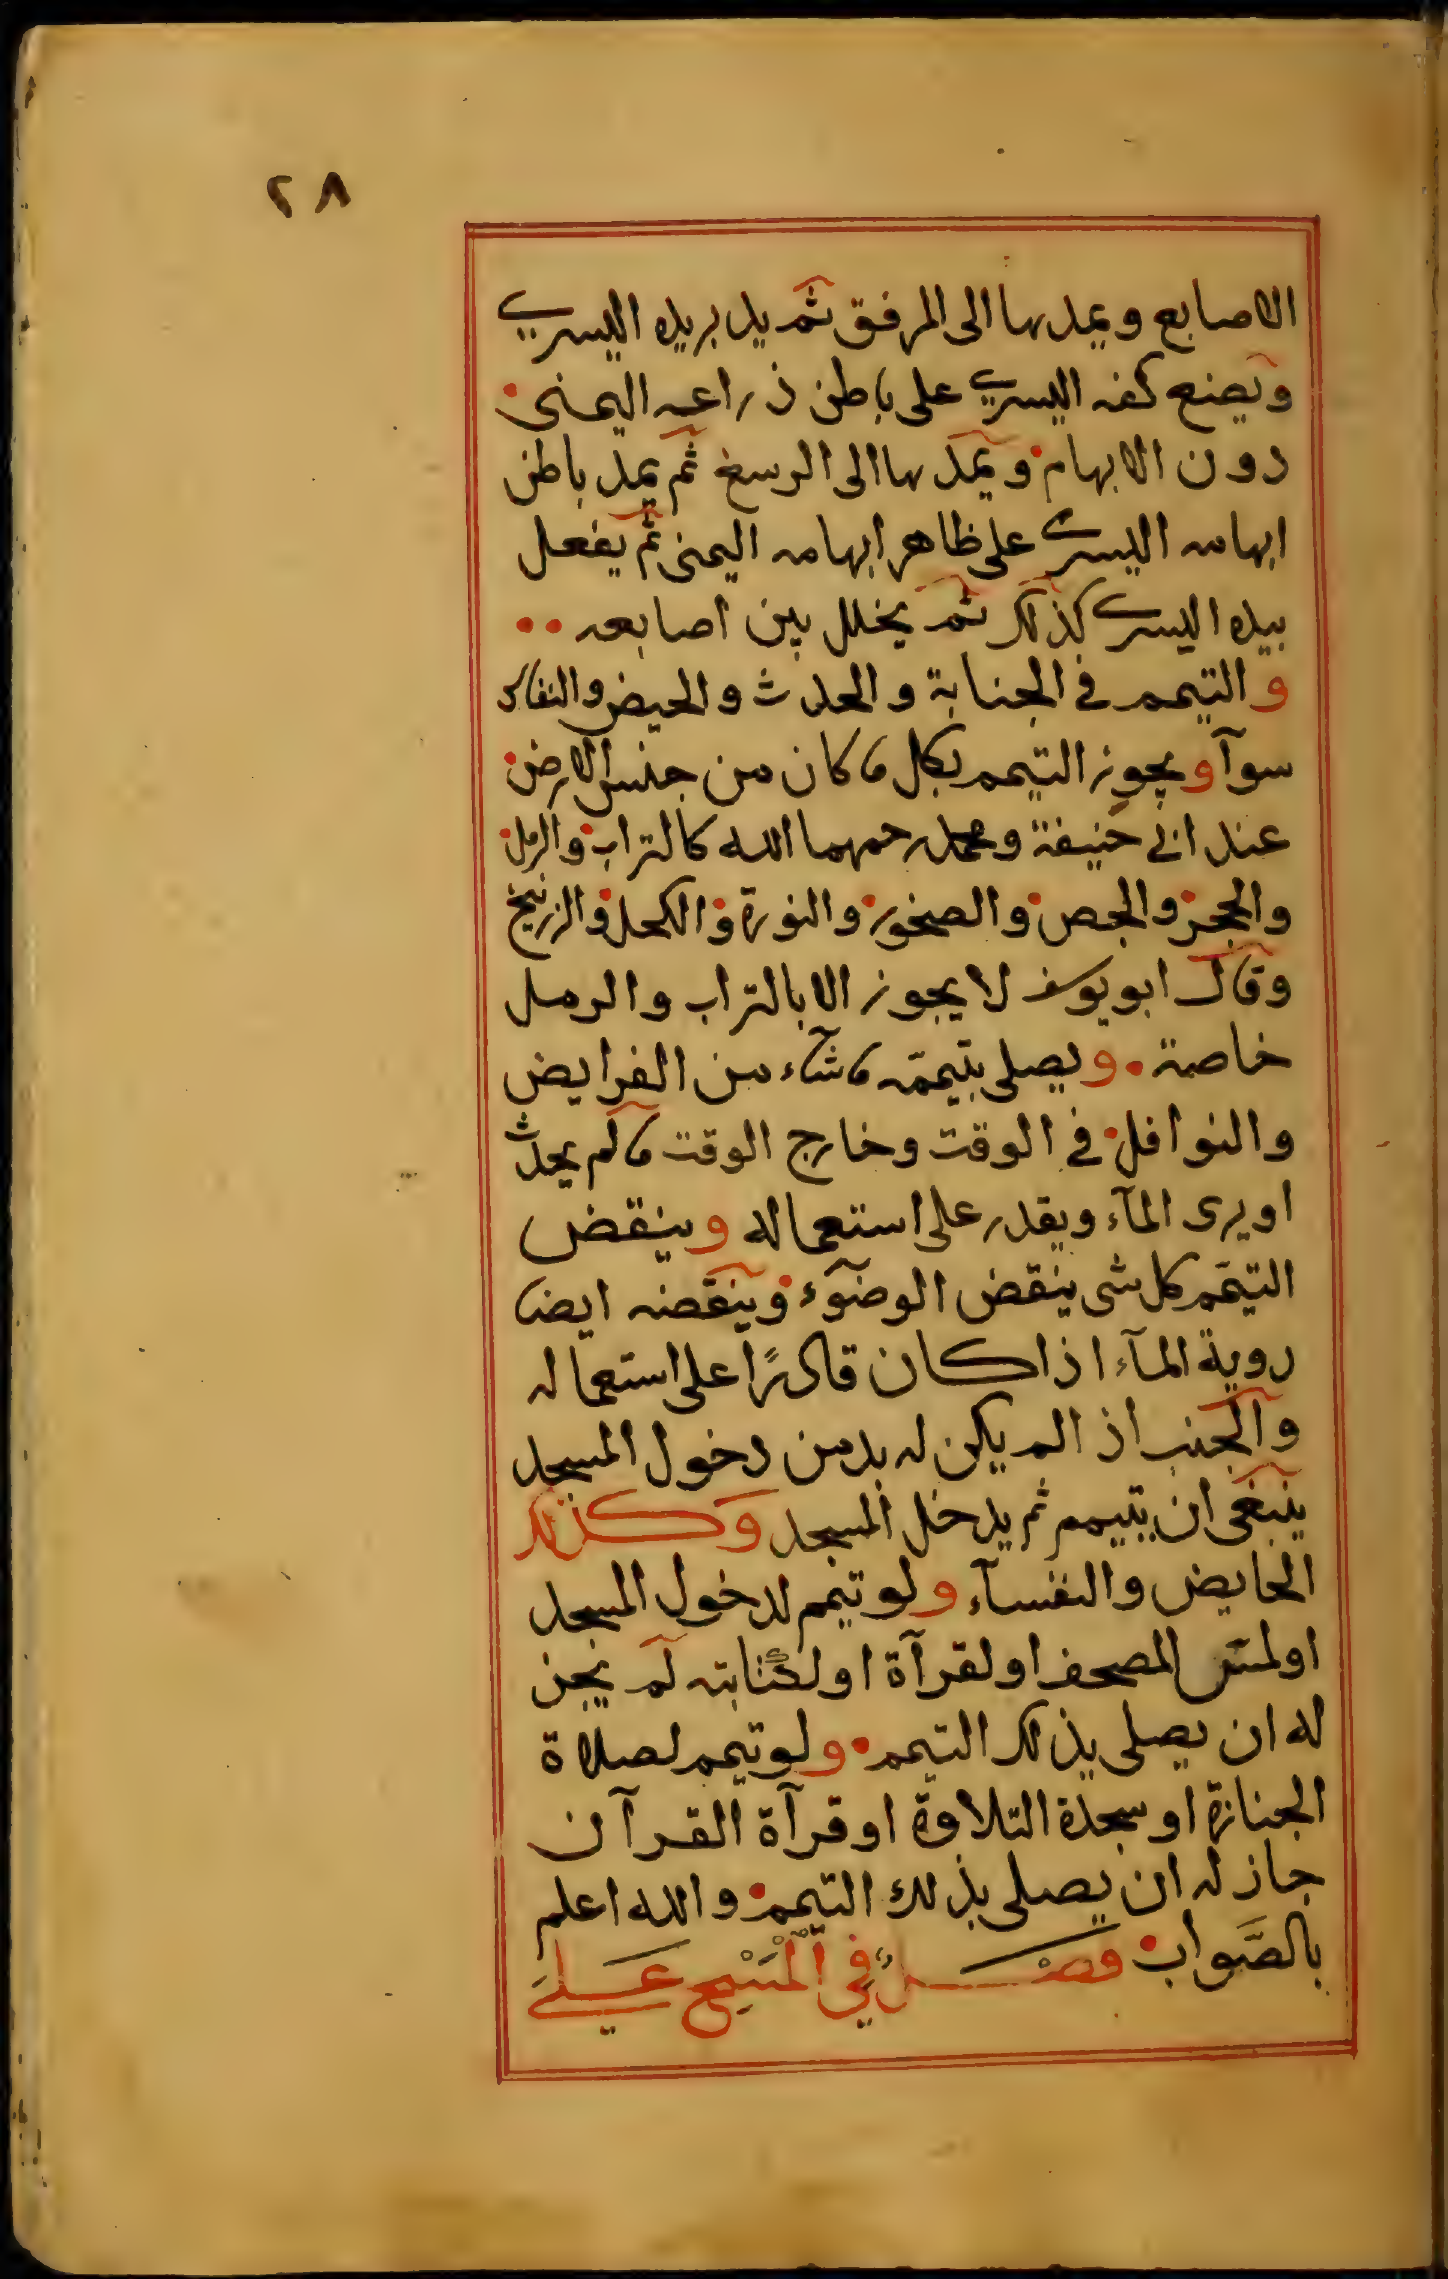 ٢٨
الاصابع ويمدها الى المرفق ثم يدير يده اليسرى
ويضع كفه اليسرى على باطن ذراعه اليمنى
دون الابهام ويمدها الى الرسغ ثم يمد باطن
ابهامه اليسرى على ظاهر ابهامه اليمنى ثم يفعل
بيده اليسرى كذلك ثم يخلل بين اصابعه
والتيمم في الجنابة والحدث والحيض والنفاس
سوآ ويجوز التيمم بكل ما كان من جنس الارض
عند ابي حنيفة ومحمد رحمهما الله كالتراب والرمل
والحجر والجص والصخور والنورة والكحل والزرنيخ
وقال ابو يوسف لا يجوز الا بالتراب والرمل
خاصة ويصلى بتيممه ما شآء من الفرايض
والنوافل في الوقت وخارج الوقت ما لم يحدث
او يرى المآء ويقدر على استعماله وينقض
التيمم كل شى ينقض الوضوٓء وينقضه ايضا
روية المآء اذا كان قادرًا على استعماله
والجنب اذا لم يكن له بد من دخول المسجد
ينبغى ان يتيمم ثم يدخل المسجد وكذلك
الحايض والنفسآء ولو تيمم لدخول المسجد
او لمسّ المصحف او لقرآة او لكتابته لم يجز
له ان يصلى بذلك التيمم ولو تيمم لصلاة
الجنازة او سجدة التلاوة او قرآة القرآن
جاز له ان يصلى بذلك التيمم والله اعلم
بالصَّواب فصْلٌ فِي الْمَسْحِ عَلَى